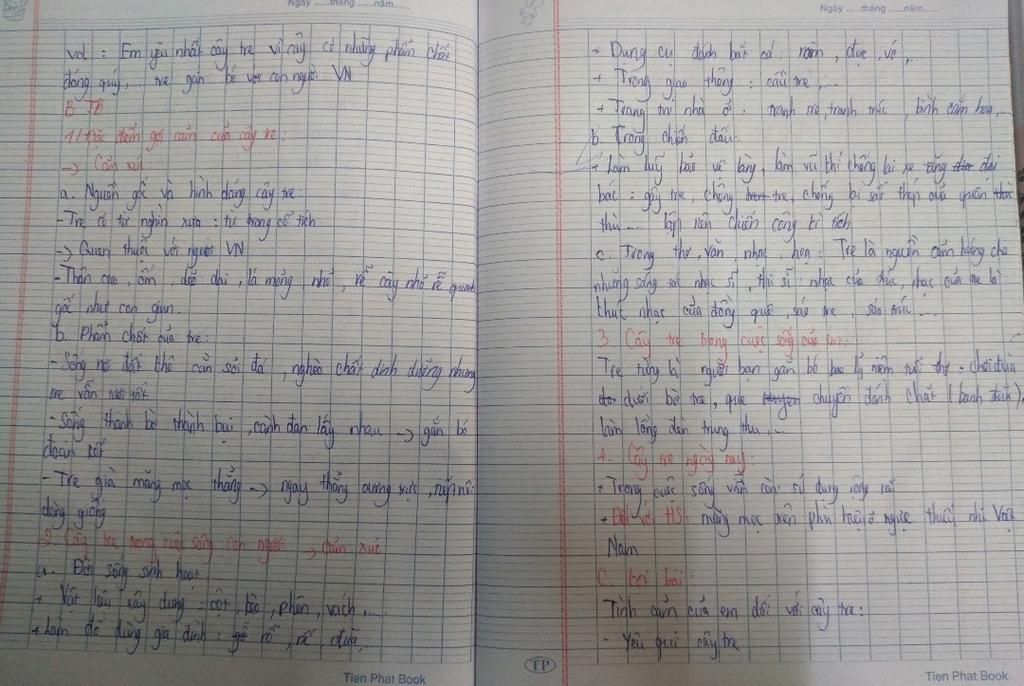 Ngày ......tháng ......năm......
vd : Em yêu nhất cây tre vì cây có những phẩm chất
đáng quý,... tre gắn bó với con người VN
B TB
1/ Đặc điểm gợi cảm của cây tre:
-> Cảm xúc
a. Nguồn gốc và hình dáng cây tre:
- Tre có từ nghìn xưa : từ trong cổ tích
-> Quen thuộc với người VN
- Thân cao, ốm, dẻo dai, lá mỏng nhỏ, rễ cây nhỏ rễ quanh
gốc như con giun.
b. Phẩm chất của tre:
- Sống nơi đất khô cằn sỏi đá, nghèo chất dinh dưỡng nhưng
tre vẫn tươi tốt
- Sống thành bờ thành bụi, cành đan lấy nhau -> gắn bó
đoàn kết
- Tre già măng mọc thẳng -> ngay thẳng cương trực,
dòng giống
2. Cây tre trong cuộc sống con người -> Cảm xúc
a. Đời sống sinh hoạt
+ Vật liệu xây dựng : cột, kèo, phên, vách ....
+ Làm đồ dùng gia đình : rổ, rế, đũa,..
Tien Phat Book
Ngày ......tháng ......năm......
+ Dụng cụ đánh bắt cá : nơm, đục, vó,...
+ Trong giao thông : cầu tre,...
+ Trang trí nhà ở : tranh tre, tranh trúc, bình cắm hoa,..
b. Trong chiến đấu:
+ Làm luỹ bảo vệ làng, làm vũ khí chống lại xe tăng đại
bác : gậy tre, chông tre, chống lại sắt thép của quân
thù.... lập nên chiến công kì tích
c. Trong thơ, văn, nhạc, họa : Tre là nguồn cảm hứng cho
những sáng tác nhạc sĩ, thi sĩ : nhạc của trúc, nhạc của tre là
khúc nhạc của đồng quê, sáo tre, sáo trúc ....
3. Cây tre trong cuộc sống của em:
Tre từng là người bạn gắn bó bao kỷ niệm tuổi thơ : chơi đùa
dưới bờ tre, que chuyền đánh chắt (banh đũa),
làm lồng đèn trung thu,...
4. Cây tre ngày nay:
+ Trong cuộc sống vẫn còn sử dụng rộng rãi
+ Đối với HS: măng mọc trên phù hiệu ở ngực thiếu nhi Việt
Nam
C. kết bài:
Tình cảm của em đối với cây tre:
- Yêu quí cây tre
TP
Tien Phat Book